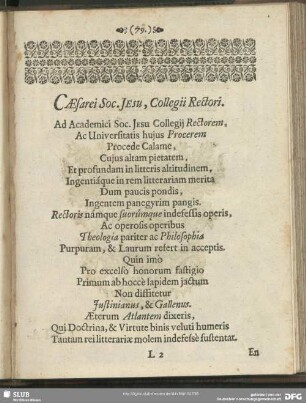 (79.)
CÆsarei Soc. JEsu, Collegii Rectori.
Ad Academici Soc. JEsu Collegij Rectorem,
Ac Universitatis hujus Procerem
Procede Calame,
Cujus altam pietatem,
Et profundam in litteris altitudinem,
Ingentiáque in rem litterariam merita
Dum paucis pondis,
Ingentem panegyrim pangis.
Rectoris námque suorúmque indefessis operis,
Ac operosis operibus
Theologia pariter ac Philosophia
Purpuram, & Laurum refert in acceptis.
Quin imo
Pro excelso honorum fastigio
Primum ab hocce lapidem jactum
Non diffitetur
Justinianus, & Gallenus.
Æterum Atlantem dixeris,
Qui Doctrina, & Virtute binis veluti humeris
Tantam rei litterariæ molem indefessè sustentat.
L 2
En
SLUB
Wir führen Wissen.
DFG